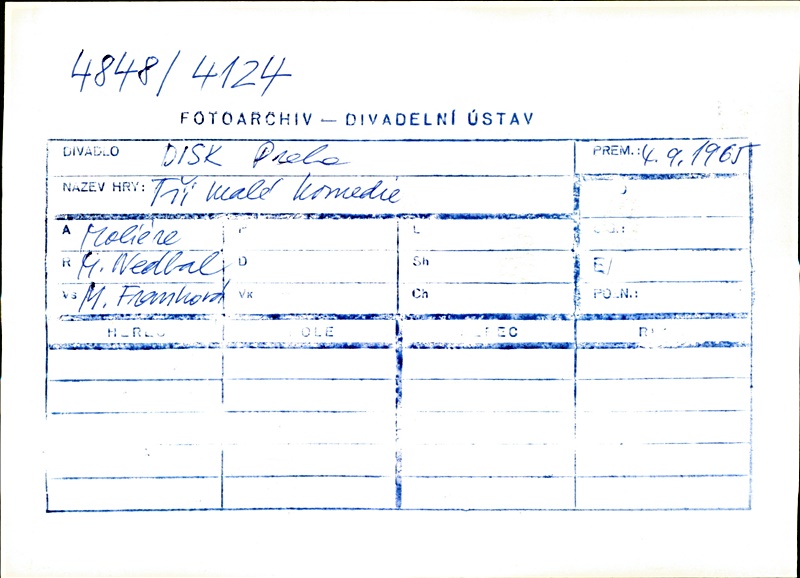 4848/4124
FOTOARCHIV — DIVADELNÍ ÚSTAV
DIVADLO DISK Praha PREM.: 4.9.1965
NÁZEV HRY: Tři malé komedie
A Moliére L
R M. Nedbal D Sh E/
Vs M. Franková Vk Ch POZN.:
HEREC ROLE HEREC